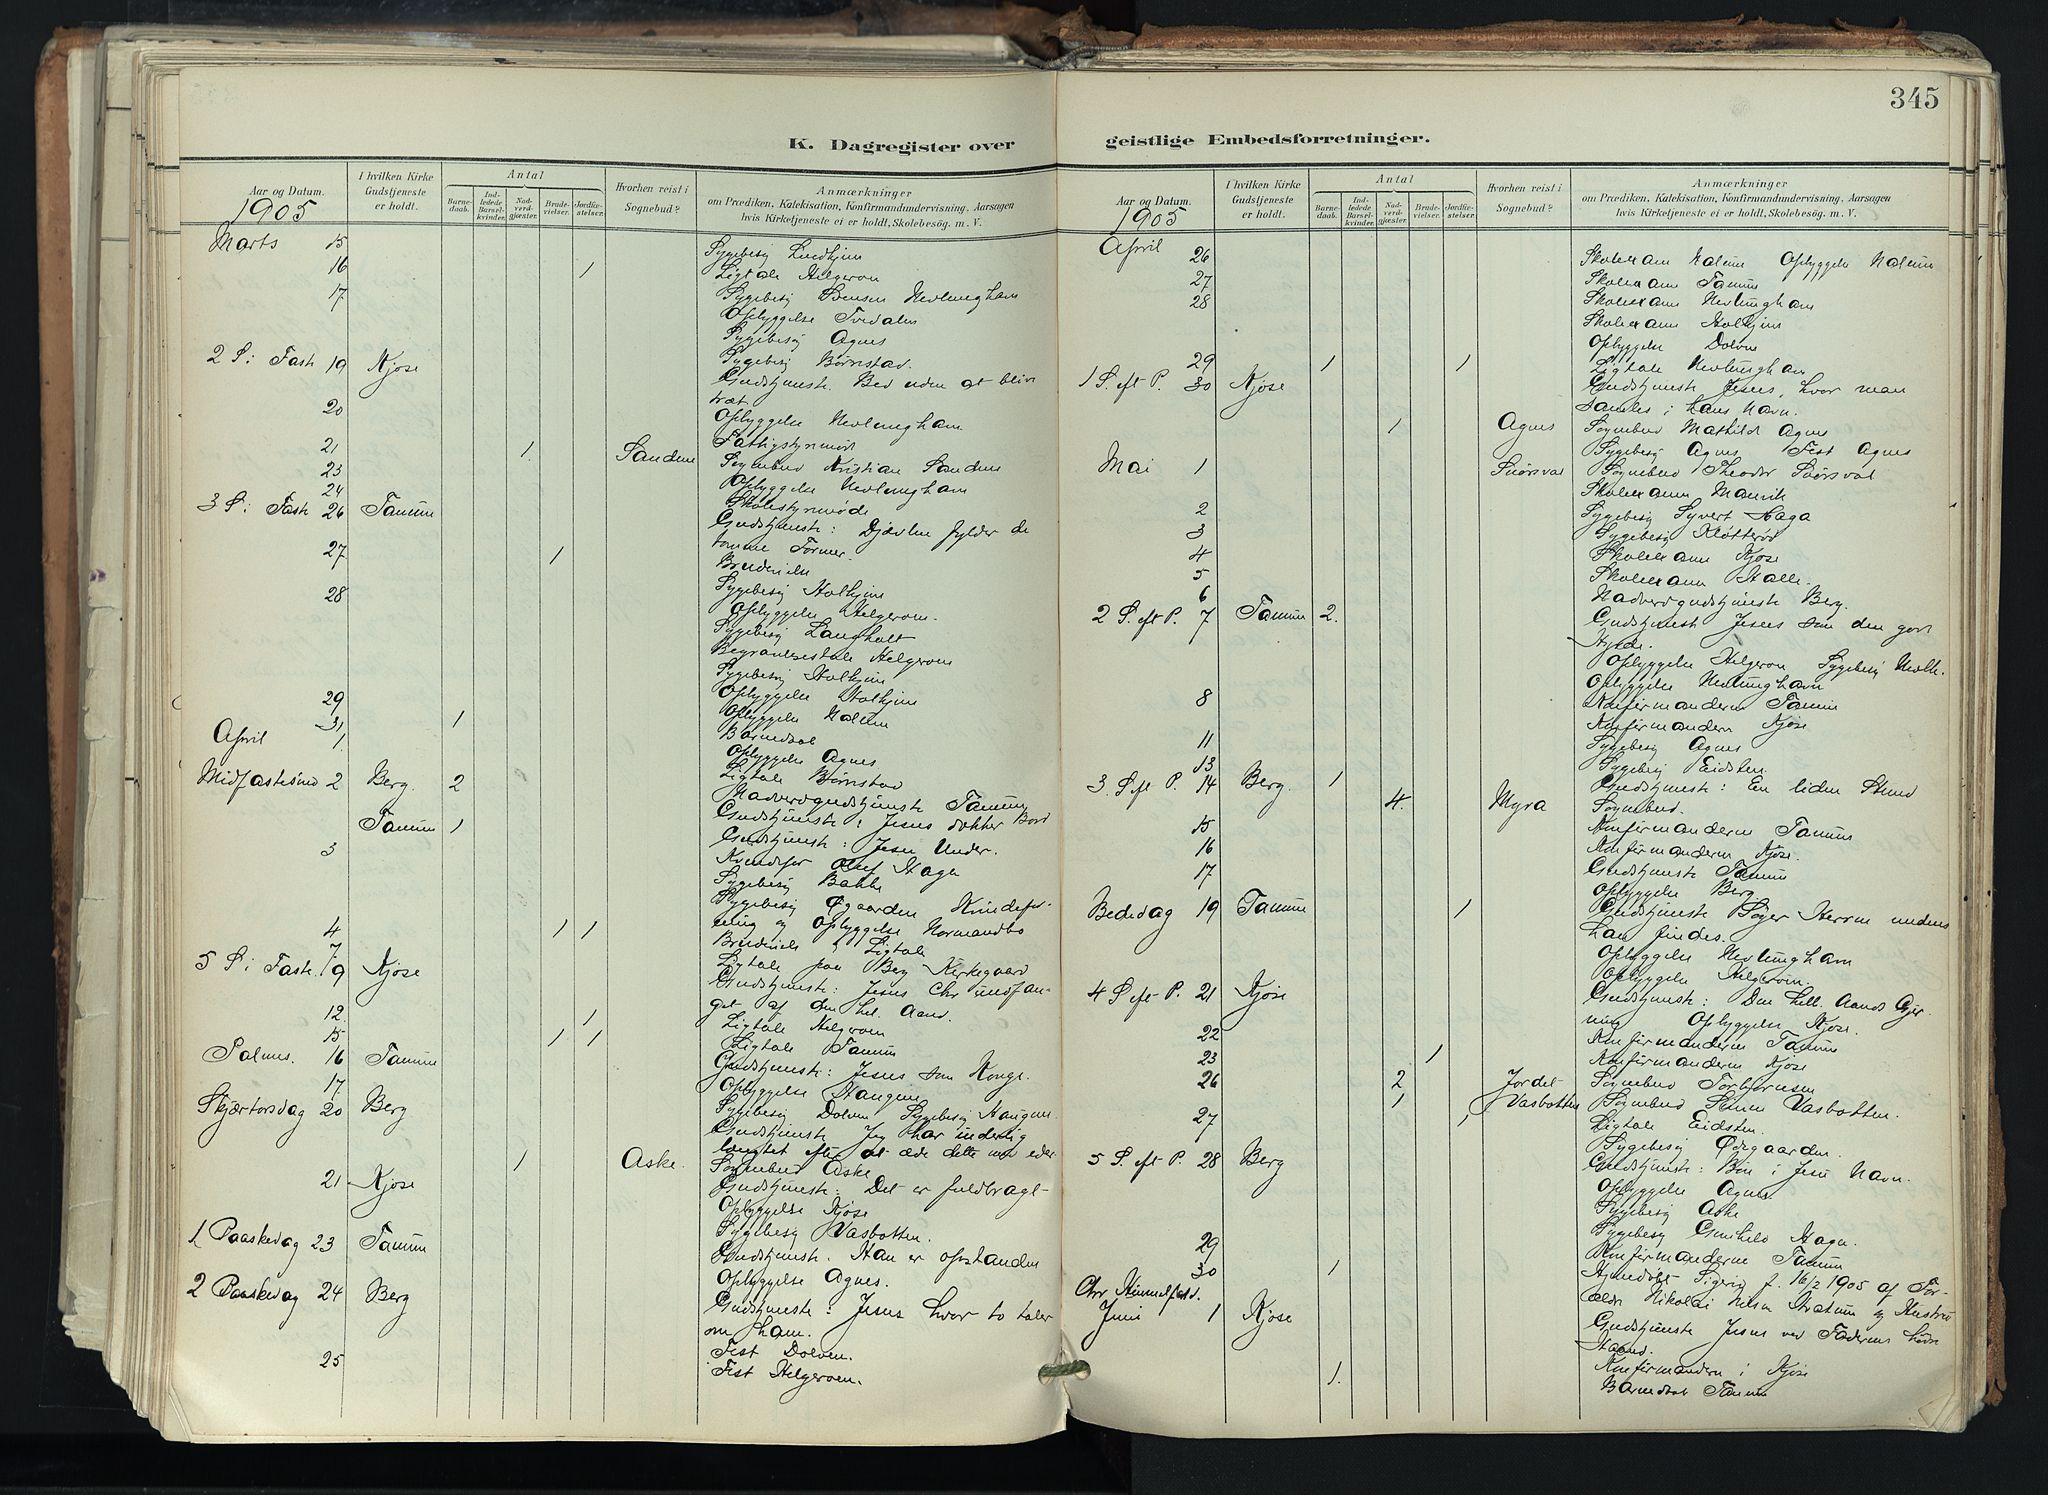 345
K. Dagregister over
geistlige Embedsforretninger.
Aar og Datum.
1905
I hvilken Kirke Gudstjeneste er holdt.
Antal
Barne-daab.
Ind-ledede Barsel-kvinder.
Nad-verd-gjæster.
Brude-vielser.
Jordfæ-stelser.
Hvorhen reist i Sognebud?
Anmærkninger
om Prædiken, Katekisation, Konfirmandundervisning, Aarsagen
hvis Kirketjeneste ei er holdt, Skolebesög. m. V.
Marts 15 Sygebesøg
16 1 Ligtale Helgeroen
17 Sygebesøg Nevlungham
Opbyggelse Tvedalen
Sygebesøg Agnes
Sygebesøg Børnstad.
2 S. i Fast 19 Kjose Gudstjeneste. Bed uden at bliv
træt
20 Opbyggelse Nevlungham
Fattigstyrmøde
21 1. Sanden Sognebud Kristian Sanden
23 Opbyggelse Nevlungham
24 Skolestyrmøde
3 S. i Fast 26 Tanum Gudstjeneste: Djævlen fylder de
tomme Former.
27 1 Brudevielse
Sygebesøg Holhjem
28 Opbyggelse Helgeroen.
Sygebesøg Langholt
Begravelsestale Helgeroen
Sygebesøg Holhjem
Opbyggelse Holhjem
29 Opbyggelse Nalum
31 1 Barnedaab
April 1. Opbyggelse Agnes
Ligtale Børnstad
Nadverdgudstjeneste Tanum
Midfastesønd 2 Berg. 2 Gudstjeneste: Jesus dækker Bord
Tanum 1 Gudstjeneste: Jesu Under.
3 Olef Haga
Sygebesøg Bakke
Sygebesøg Øgaarden
og Opbyggelse Normandbo
4 1 1 Brudeviels & Ligtale
7 Ligtale paa Berg Kirkegaard
5 S. i Fast. 9 Kjose Gudstjeneste: Jesus Chr undfan-
get af den hel. Aand.
12. 1 Ligtale Helgeroen
15 1 1 Ligtale Tanum
Palmes. 16 Tanum Gudstjeneste: Jesus som Konge.
17 Opbyggelse Haugene
Sygebesøg Dolven Sygebesøg Haugene
Skjærtorsdag 20 Berg Gudstjeneste Jeg har inderlig
længtet efter at æde dette med eder
1 Aske. Sognebud Aske
21 Kjose Gudstjeneste: Det er fuldbragt
Opbyggelse Kjose
Sygebesøg Vasbotten.
1 Paaskedag 23 Tanum Gudstjeneste. Han er opstanden
Opbyggelse Agnes.
2 Paaskedag 24 Berg Gudstjeneste: Jesus hvor to taler
om ham.
Fest Dolven.
25 Fest Helgeroen.
Aar og Datum.
1905
I hvilken Kirke Gudstjeneste er holdt.
Antal
Barne-daab.
Ind-ledede Barsel-kvinder.
Nad-verd-gjæster.
Brude-vielser.
Jordfæ-stelser.
Hvorhen reist i Sognebud?
Anmærkninger
om Prædiken, Katekisation, Konfirmandundervisning, Aarsagen
hvis Kirketjeneste ei er holdt, Skolebesög. m. V.
April 26 Skolexam Nalum Opbyggelse Nalum
27 Skolexam Tanum
28 Skolexam Nevlungham
Skolexam Holhjem
Opbyggelse Dolven
29 1 1 Ligtale Nevlungham
1 S. eft P. 30 Kjose Gudstjeneste Jesus, hvor man
samles i hans Navn.
1 Agnes Sognebud Mathilde Agnes
Sygebesøg Agnes Fest Agnes
Mai 1 Sognebud Theodor
Skolexam Manvik
2 Sygebesøg Syvert Haga
3 Sygebesøg Kløtterød
4 Skolexam Kjose
5 Skolexam Halle.
6 Nadverdgudstjeneste Berg.
2 S. eft P. 7 Tanum 2. Gudstjenest Jesus som den gode
Hyrde.
Opbyggelse Helgeroen Sygebesøg Nevlh.
Opbyggelse Nevlunghavn
8 Konfirmanderne Tanum
Konfirmandern Kjose
11 Sygebesøg Agnes
13 Sygebesøg Eidsten.
3. S eft P. 14 Berg. 1 Gudstjeneste: En liden Stund
4. Myra Sognebud.
15 Konfirmanderne Tanum
16 Konfirmanderne Kjose.
17 Gudstjeneste Tanum
Opbyggelse Berg
Bededag 19 Tanum 1 Gudstjeneste Søger Herren medens
han findes.
Opbyggelse Nevlungham
Opbyggelse Helgeroen.
4 S. eft P. 21 Kjose Gudstjeneste: Den hell. Aands Gjer-
ning Opbyggelse Kjose.
22 Konfirmanderne Tanum
23 1 Konfirmanderne Kjose
26 2 Jordet Sognebud Torbjørnsen
1 Vasbotten Sognebud Vasbotten.
27 1 Ligtale Eidsten.
Sygebesøg Ødegaarden.
5 S. eft P. 28 Berg Gudstjeneste: Bøn i Jesu Navn.
Opbyggelse Agnes
Sygebesøg Aske
Sygebesøg Gunhild Haga.
29 Konfirmanderne Tanum
30 1 Hjemedøbt Sigrid f. 16/2 1905 af For-
ældr Nikolai Nilsen
Chr Himmelfartsd.
Juni 1 Kjose Gudstjeneste Jesus ved Faderens høire
Haand.
Konfirmandern i Kjose
1. Barnedaab Tanum